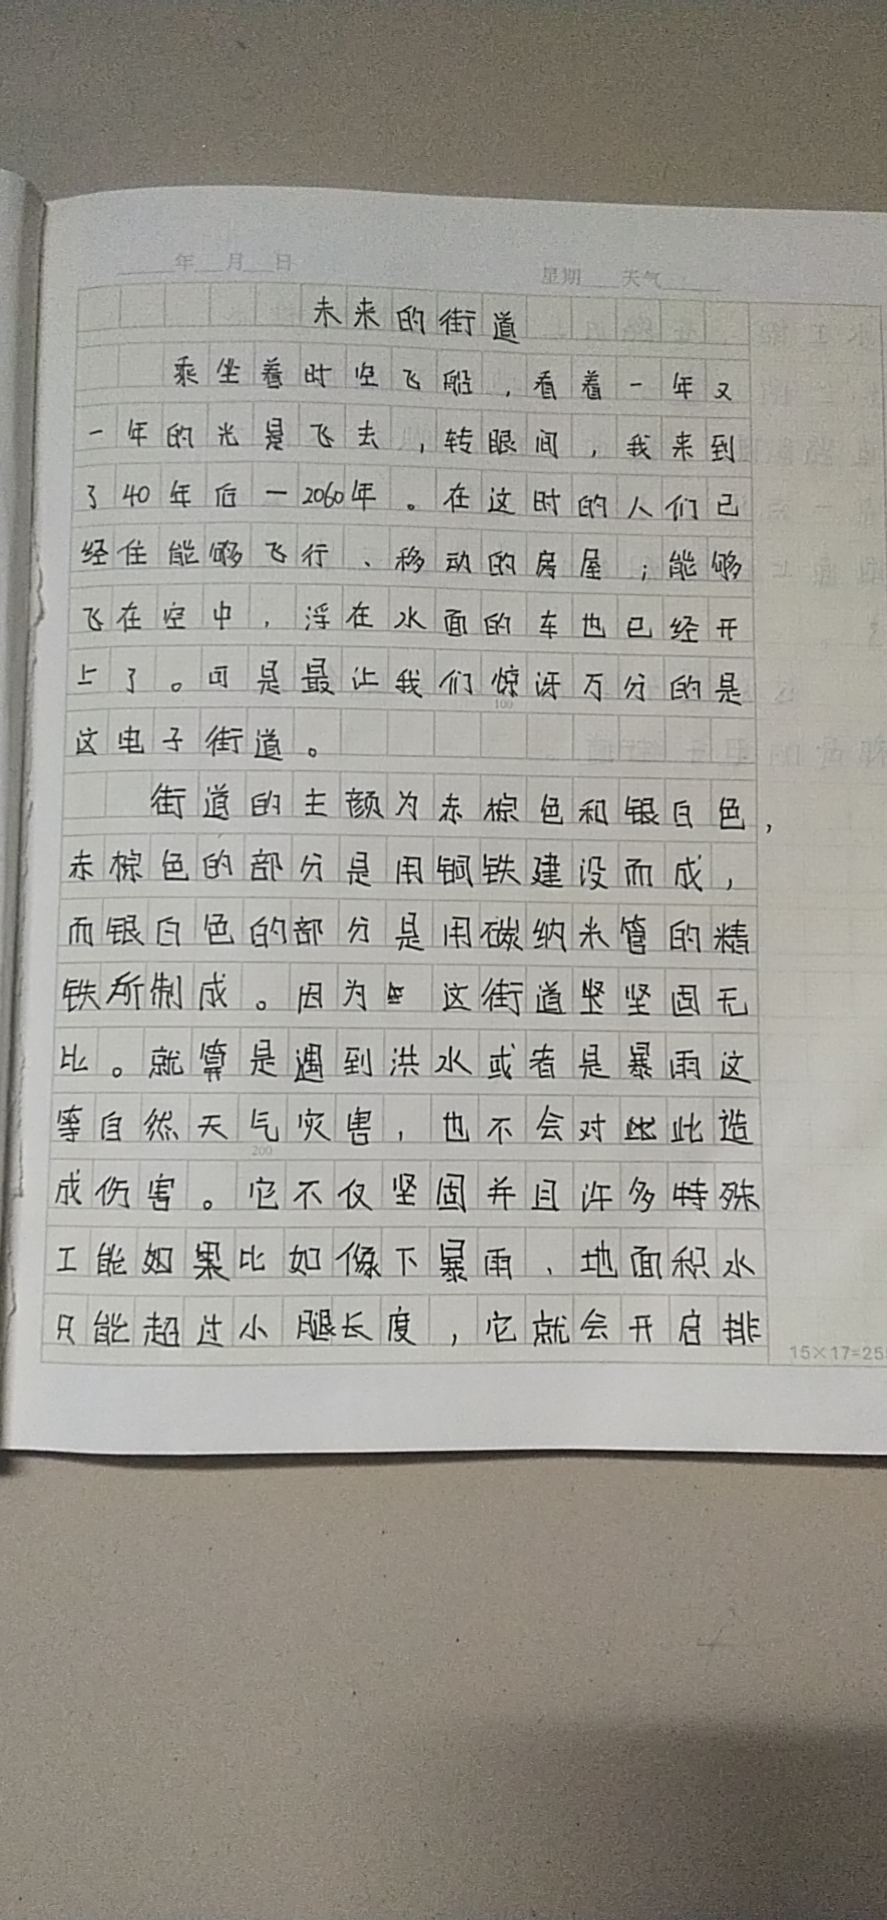 年 月 日 星期 天气
未来的街道
乘坐着时空飞船，看着一年又
一年的光是飞去，转眼间，我来到
了40年后一2060年。在这时的人们已
经住能够飞行、移动的房屋；能够
飞在空中，浮在水面的车也已经开
上了。可是最让我们惊讶万分的是
100
这电子街道。
街道的主颜为赤棕色和银白色，
赤棕色的部分是用铜铁建设而成，
而银白色的部分是用碳纳米管的精
铁所制成。因为 这街道坚坚固无
比。就算是遇到洪水或者是暴雨这
等自然天气灾害，也不会对此造
200
成伤害。它不仅坚固并且许多特殊
工能如果比如像下暴雨、地面积水
只能超过小腿长度，它就会开启排
15×17=255